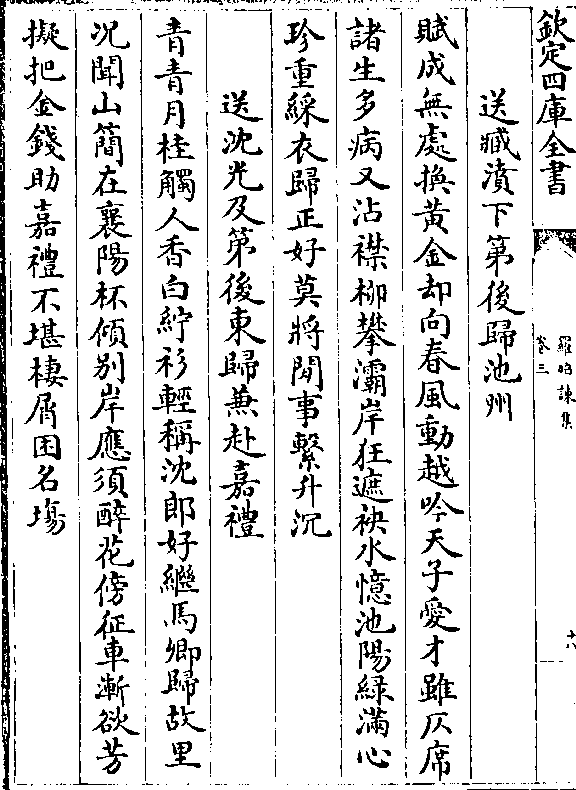 欽定四庫全書
羅昭諫集
卷三
十八
送臧濆下第後歸池州
賦成無處換黃金却向春風動越吟天子愛才雖仄席
諸生多病又沾襟柳攀灞岸狂遮袂水憶池陽緑滿心
珍重綵衣歸正好莫將閒事繫升沉
送沈光及第後東歸兼赴嘉禮
青青月桂觸人香白紵衫輕稱沈郎好繼馬卿歸故里
况聞山簡在襄陽杯傾别岸應須醉花傍征車漸欲芳
擬把金錢助嘉禮不堪棲屑困名塲